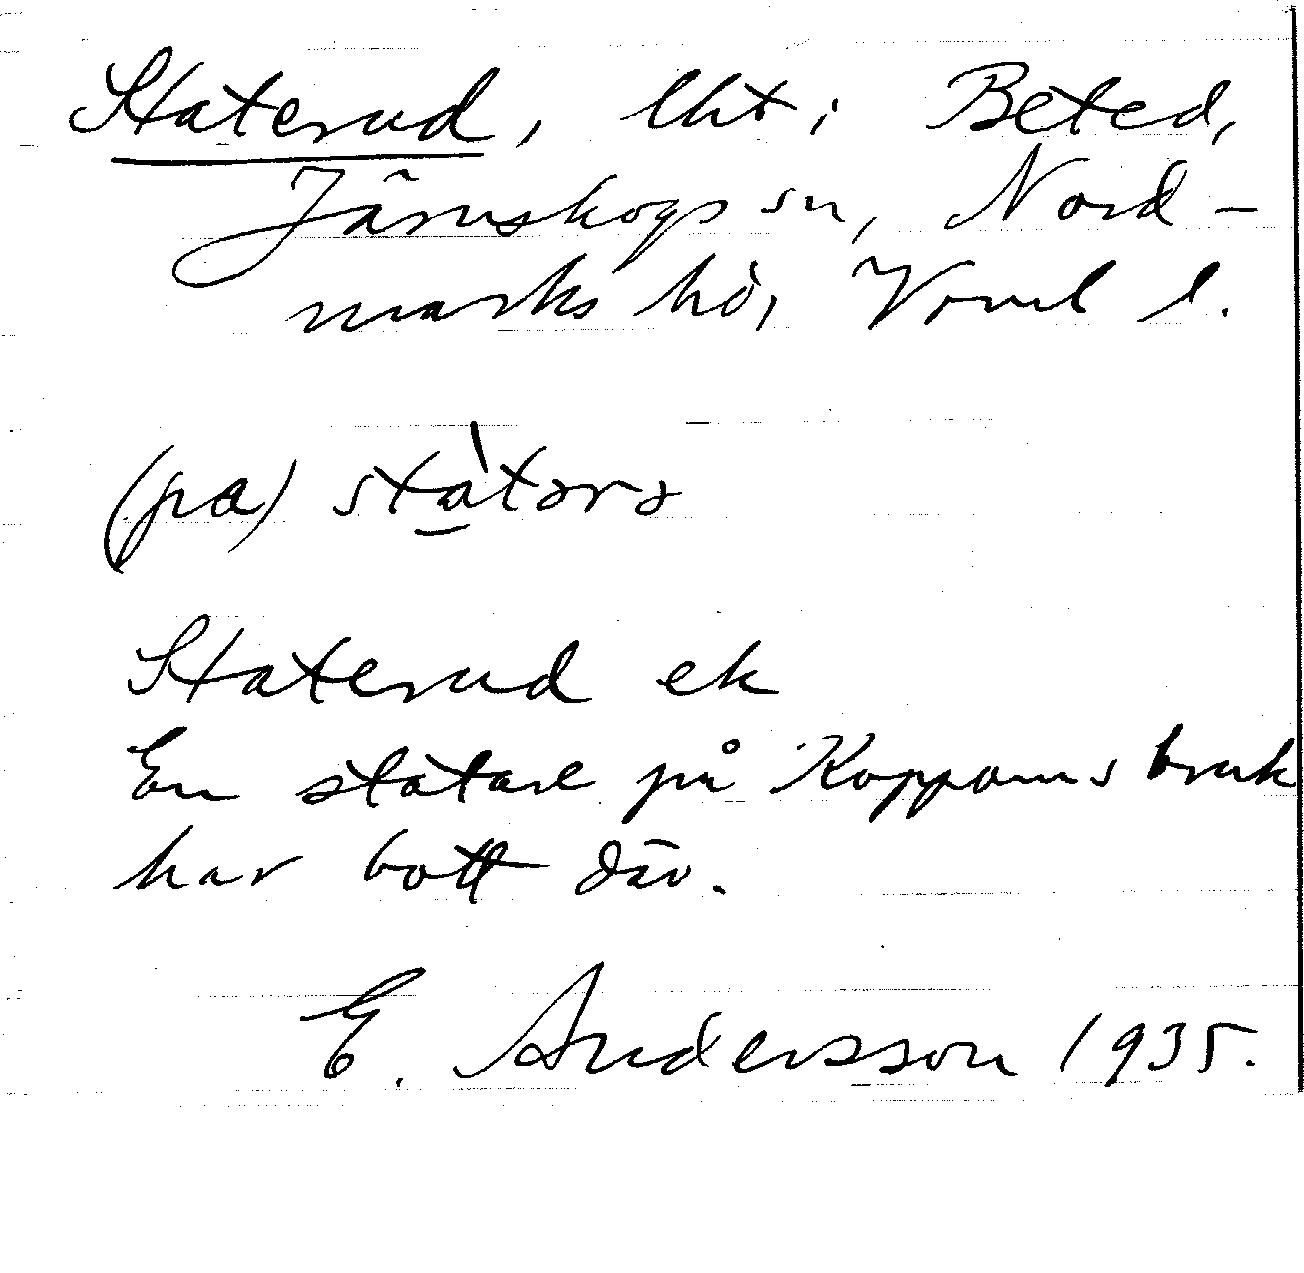 Staterud, lht i Beted,
Järnskogs sn, Nord-
marks hd, Vrml l.
(pa) stàtərə
Staterud ek
En statare på Koppoms bruk
har bott där.
E. Andersson 1935.